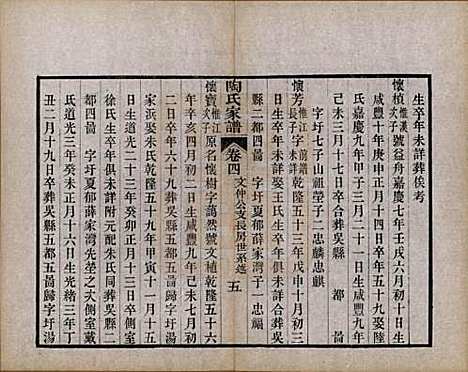 生卒年未詳葬俟考
懷楨 惟漢次子 號益舟嘉慶七年壬戌六月初十日生
咸豐十年庚申正月十四日卒年五十九娶
氏嘉慶九年甲子三月二十一日生咸豐九年
己未三月初十日卒合葬吳縣 都 啚
字圩七子山祖塋子二忠麟忠麒
懷芳 惟江長子 乾隆五十三年戊申十月初三
日生卒年未詳娶王氏生卒年俱未詳合葬吳
縣二都四啚 字圩夏郁薛家灣子一忠福
陶氏家譜 卷四 文仲公支長房世系述 五
懷寶 惟江次子 原名懷樹字蕅然號文植乾隆五十六
年辛亥四月初二日生道光二十七年丁未七月初
家浜娶朱氏乾隆五十九年甲寅十一月十五
日生道光二十三年癸卯正月十三日卒側室
徐氏生卒年俱未詳附元配朱氏同葬吳縣二
都四啚 字圩夏郁薛家灣先塋之次側室戴
氏道光三年癸未正月十六日生光緒三年丁
丑二月十九日卒葬吳縣五都五啚歸字圩湯